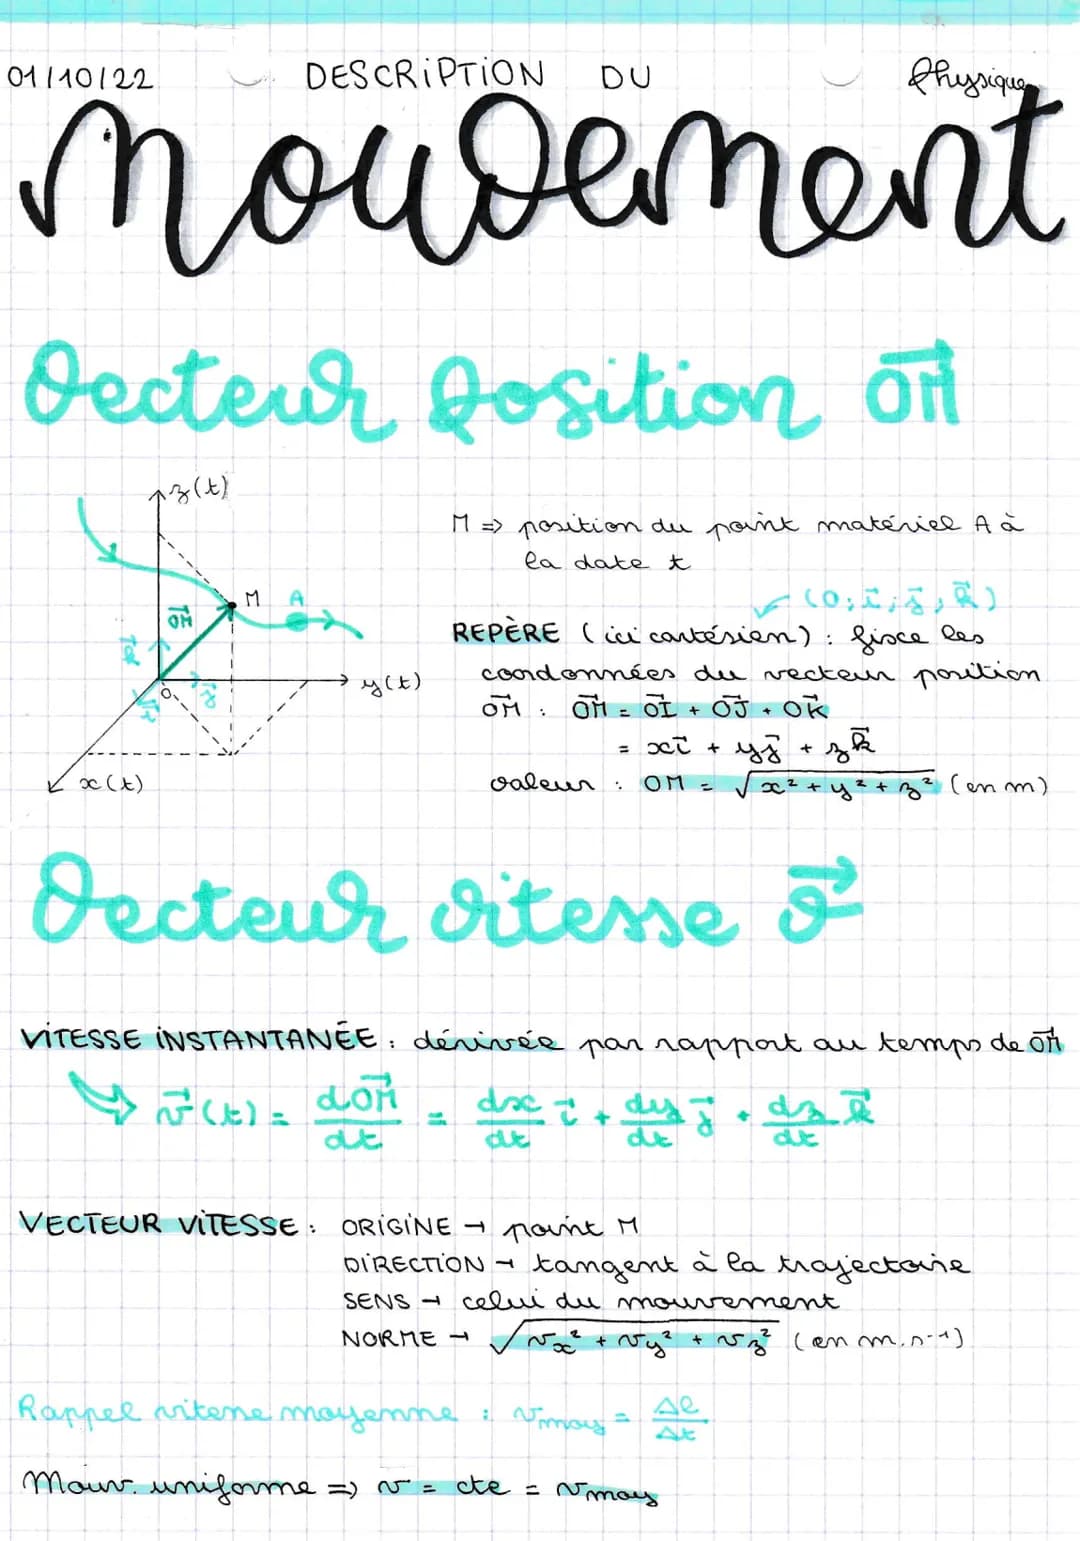 01/10/22 DESCRIPTION DU Physique
Mouvement
Vecteur Position OM⃗
z(t)
M
A
OM⃗
k⃗
O
j⃗
y(t)
i⃗
x(t)
M => position du point matériel A à
la date t
(O; i⃗; j⃗; k⃗)
REPÈRE (ici cartésien) : fixe les
coordonnées du vecteur position
OM⃗ : OM⃗ = OI⃗ + OJ⃗ + OK⃗
= xi⃗ + yj⃗ + zk⃗
valeur : OM = √(x² + y² + z²) (en m)
Vecteur Vitesse v⃗
VITESSE INSTANTANÉE : dérivée par rapport au temps de OM⃗
v⃗(t) = dOM⃗/dt = dx/dt i⃗ + dy/dt j⃗ + dz/dt k⃗
VECTEUR VITESSE : ORIGINE → point M
DIRECTION → tangent à la trajectoire
SENS → celui du mouvement
NORME → √(vx² + vy² + vz²) (en m.s⁻¹)
Rappel vitesse moyenne : vmoy = Δl/Δt
Mouv. uniforme => v = cte = vmoy